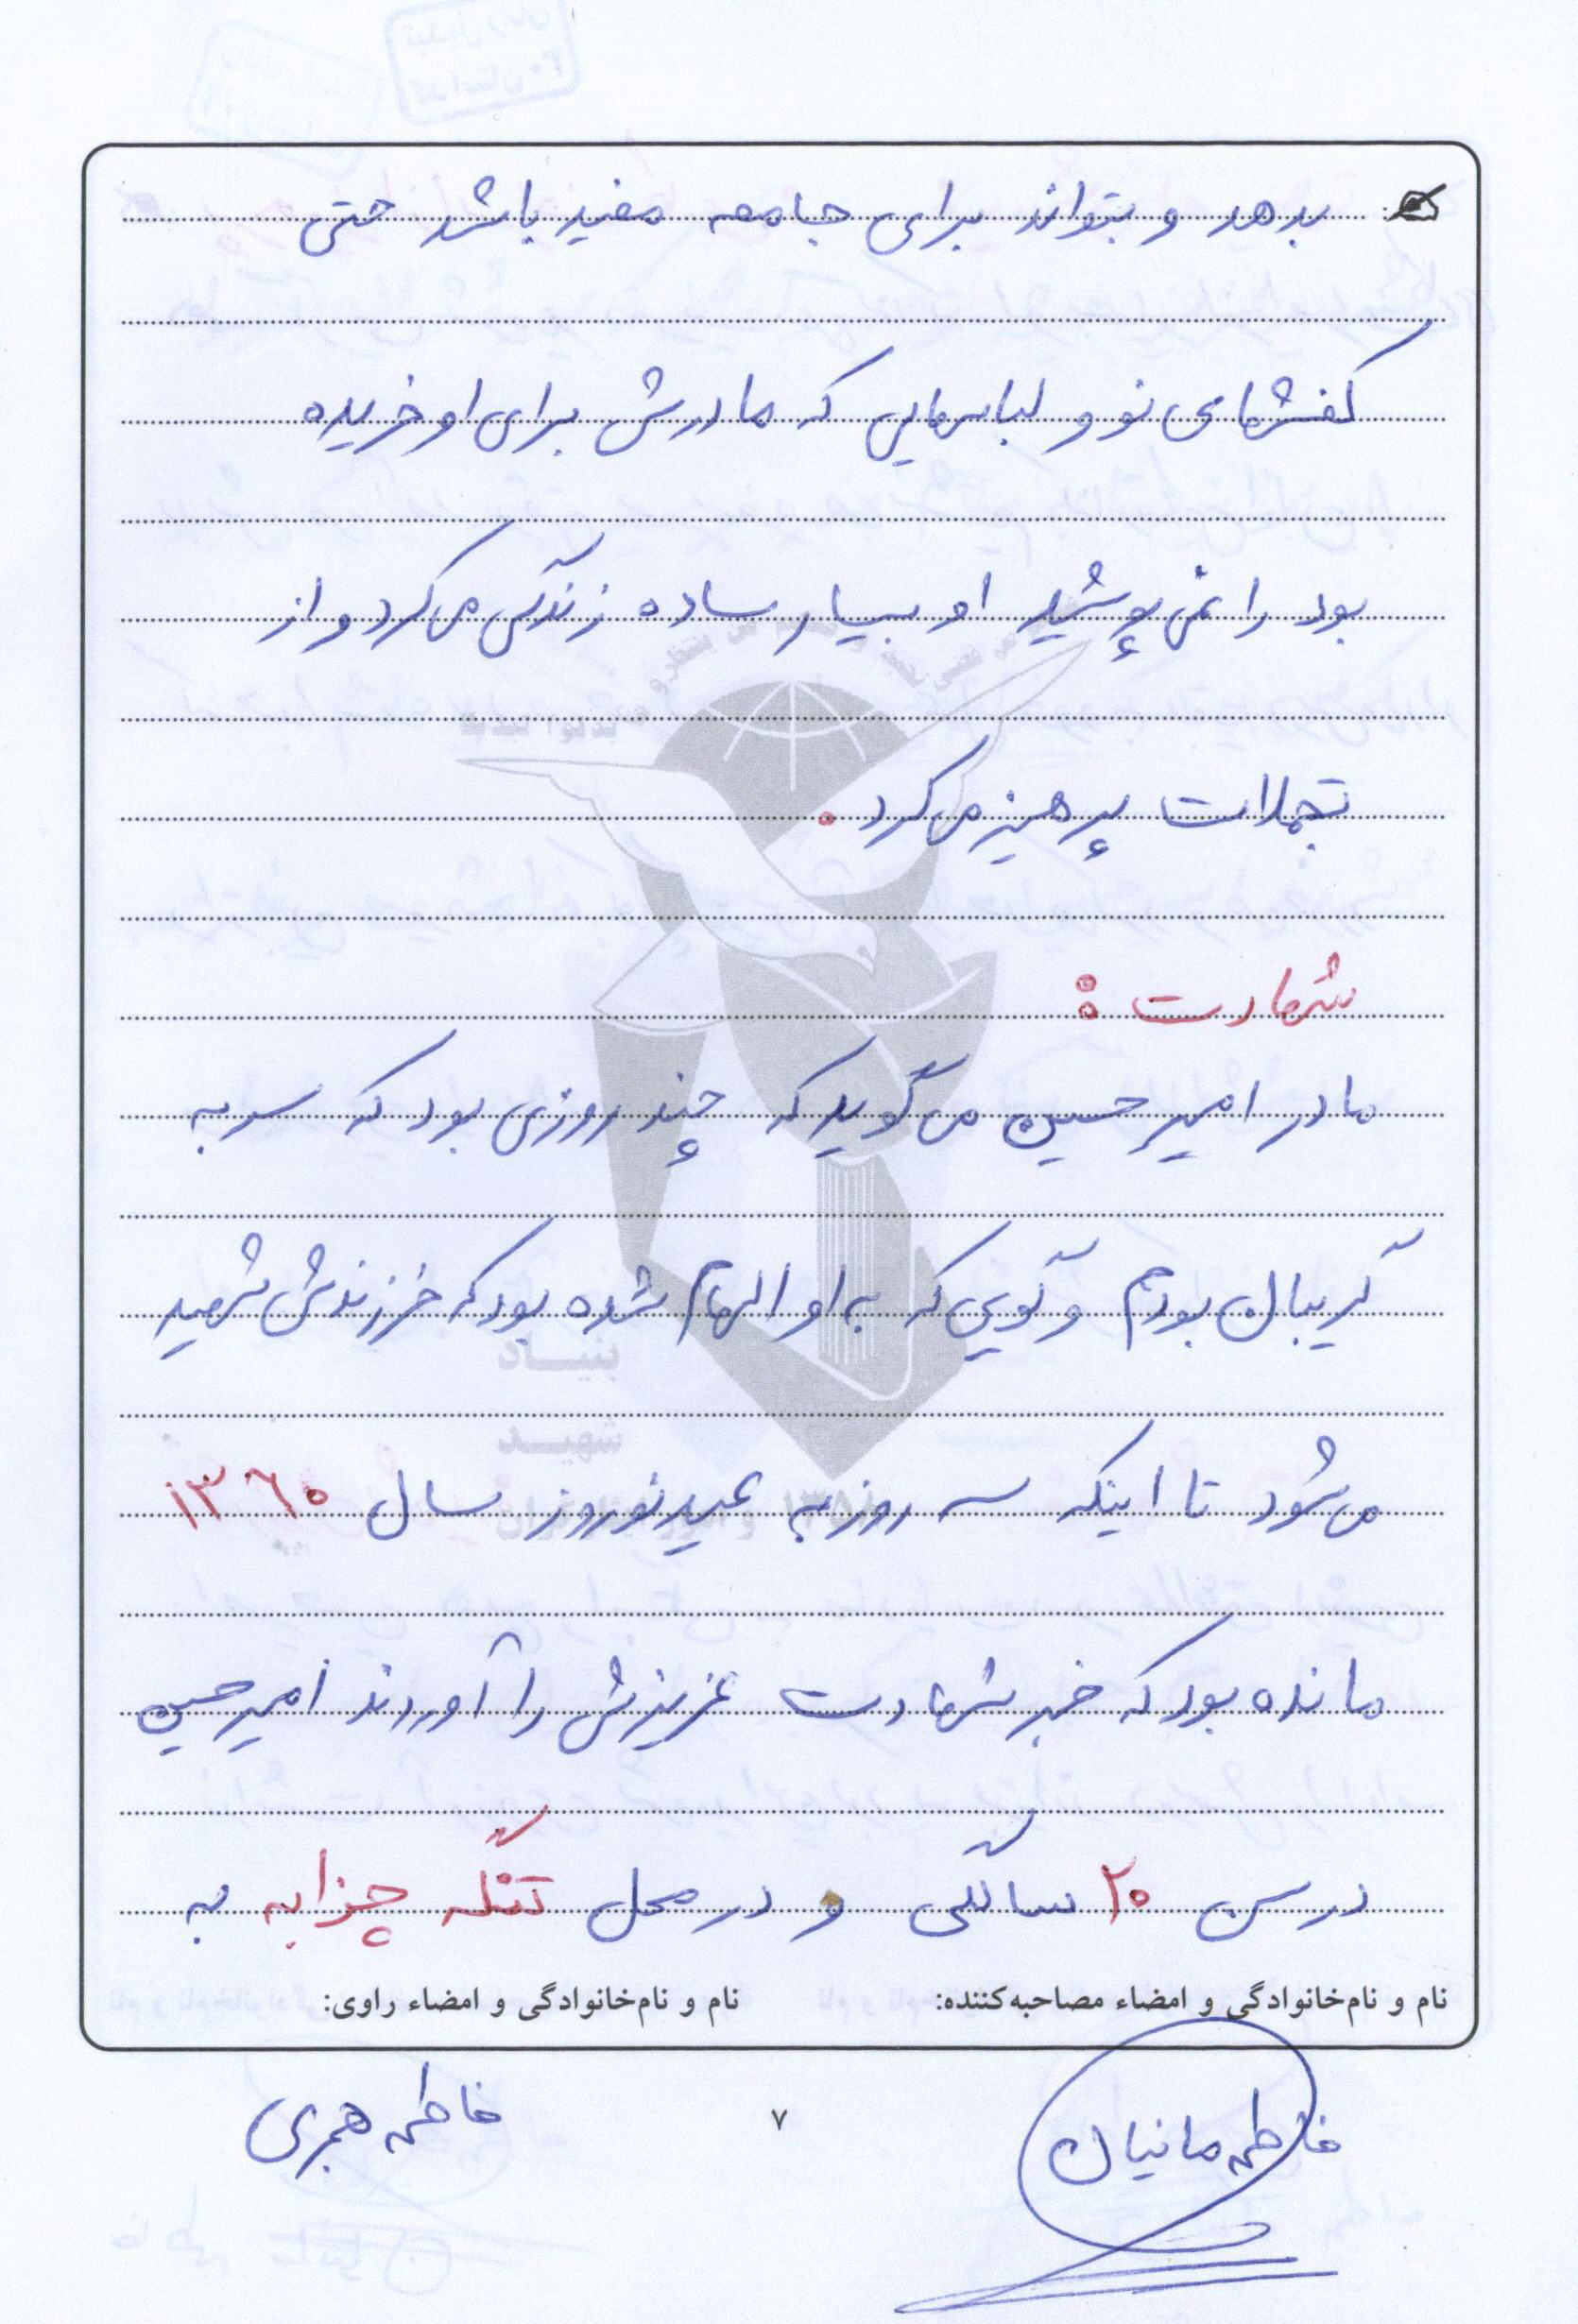 بدهد و بتواند برای جامعه مفید باشد حتی
کفشهای نو و لباسهایی که مادرش برای او خریده
بود را نمی پوشید او بسیار ساده زندگی می کرد و از
تجملات پرهیز می کرد .
شهادت :
مادر امیرحسین می گوید که چند روزی بود که سر به
گریبان بودم و گویی که به او الهام شده بود که فرزندش شهید
می شود تا اینکه سه روز به عید نوروز سال ۱۳۶۰
مانده بود که خبر شهادت عزیزش را آوردند امیرحسین
در سن ۲۰ سالگی و در محل تنگه چزابه به
نام و نام‌خانوادگی و امضاء مصاحبه‌کننده: نام و نام‌خانوادگی و امضاء راوی:
فاطمه مانیان ۷ فاطمه هجری